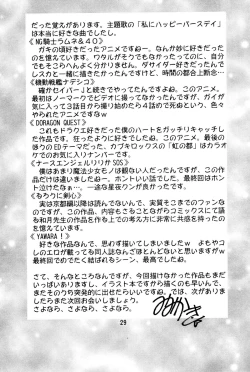 だった覚えがあります、主題歌の「私にハッピーバースデイ」
は本当に好きな曲でした。
《NG騎士ラムネ&40》
ガキの頃好きだったアニメですねー。なんか妙に好きだった
のを憶えています。ワタルがそうでもなかったってのに、自分
でもそこらへんよく分りません。ダサイダー好きだったんで
レスカと一緒に描きたかったんですけど、時間の都合上断念…
《機動戦艦ナデシコ》
確かビバーと続きでやってたんですよね。このアニメ、
最初はノーマークでビデオに撮ってなかったんですが、ガイが
気に入って3日目から撮り始めたら4話で死ぬという、色々
やられたアニメですな
《DORAGON QUEST》
これもドラクエ好きだった僕のハートをガッチリキャッチし
た作品です。狂ったように好きでした。このアニメ、最後の
ほうのEDテーマだった、カブキロックスの「虹の都」はカラオ
ケでのお気に入りナンバーです。
《ナースエンジェルりりかSOS》
僕はあまり魔法少女モノは観ないんだったんですが、この作
品だけは違いましたねー。ホントいい話でした。最終回はホン
ト泣けたなぁ…。一途な星夜クンが良かったです。
《るろうに剣心》
実は京都編以降は読んでないんで、実質そこまでのファンな
のですが、この作品、内容もさることながらコミックスにて語
る和月先生の作品を作る上での考え方に非常に共感を持ったの
を憶えています。
《YAWARA!》
好きな作品なんで、思わず描いてしまいましたw よもやコ
レのエロが載ってる同人誌なんざほとんどないと思いますがw
最終回でのめでたく結ばれるシーン、最高でした。
さて、そんなところなんですが、今回描けなかった作品もまだ
いっぱいありますし、イラスト本ですから描くのも早いんで、
またそのうち突発的に出せたらいいですね。では、次がありま
したらまた次回お会いしましょう。
さよなら、さよなら、さよなら。
29